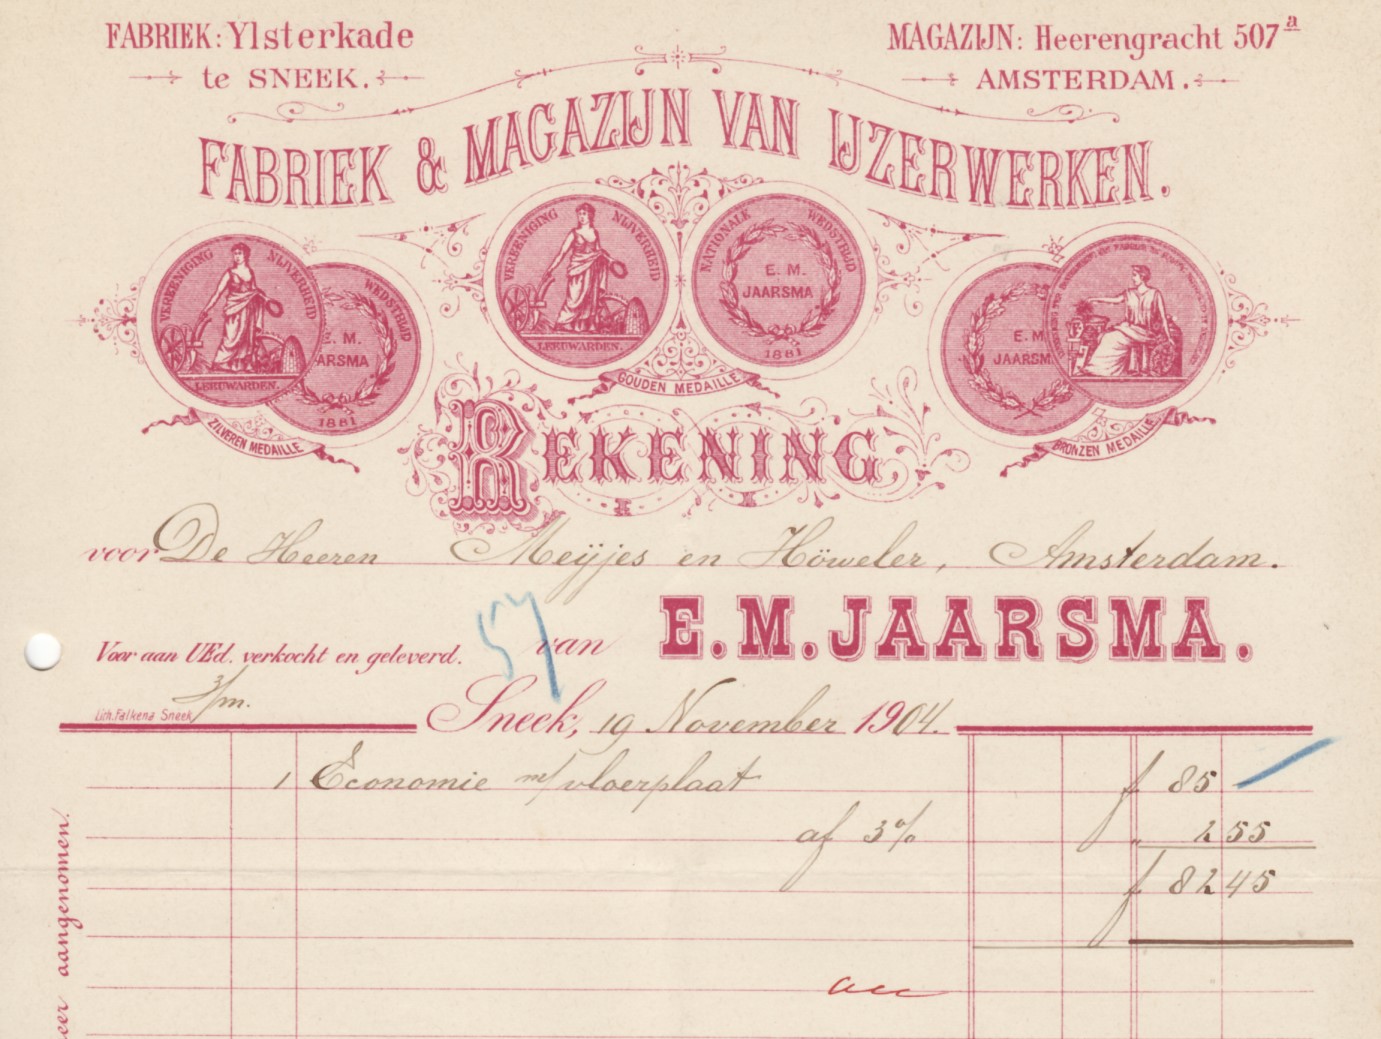 FABRIEK: Ylsterkade
te SNEEK.
MAGAZIJN: Heerengracht 507a
AMSTERDAM.
FABRIEK & MAGAZIJN VAN IJZERWERKEN.
VEREENIGING NIJVERHEID
LEEUWARDEN.
WEDSTRIJD
E. M.
AARSMA
1881
ZILVEREN MEDAILLE
VEREENIGING NIJVERHEID
LEEUWARDEN.
NATIONALE WEDSTRIJD
E. M.
JAARSMA
1881
GOUDEN MEDAILLE
E. M.
JAARSM
BRONZEN MEDAILLE
REKENING
voor De Heeren Meijjes en Höweler, Amsterdam.
57
van E. M. JAARSMA.
Voor aan UEd. verkocht en geleverd.
3/m.
Lith. Falkena Sneek
Sneek, 19 November 1904.
1 Economie m/vloerplaat f 85
af 3% " 2 55
f 82 45
eer aangenomen.